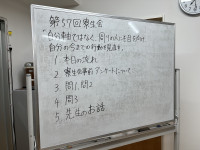 第57回寮生会
"自分勝手ではなく、周りの人に目を向け
自分の今までの行動を見直す"
1. 本日の流れ
2. 寮生会事前アンケートについて
3. 問1, 問2
4. 問3
5. 先生のお話